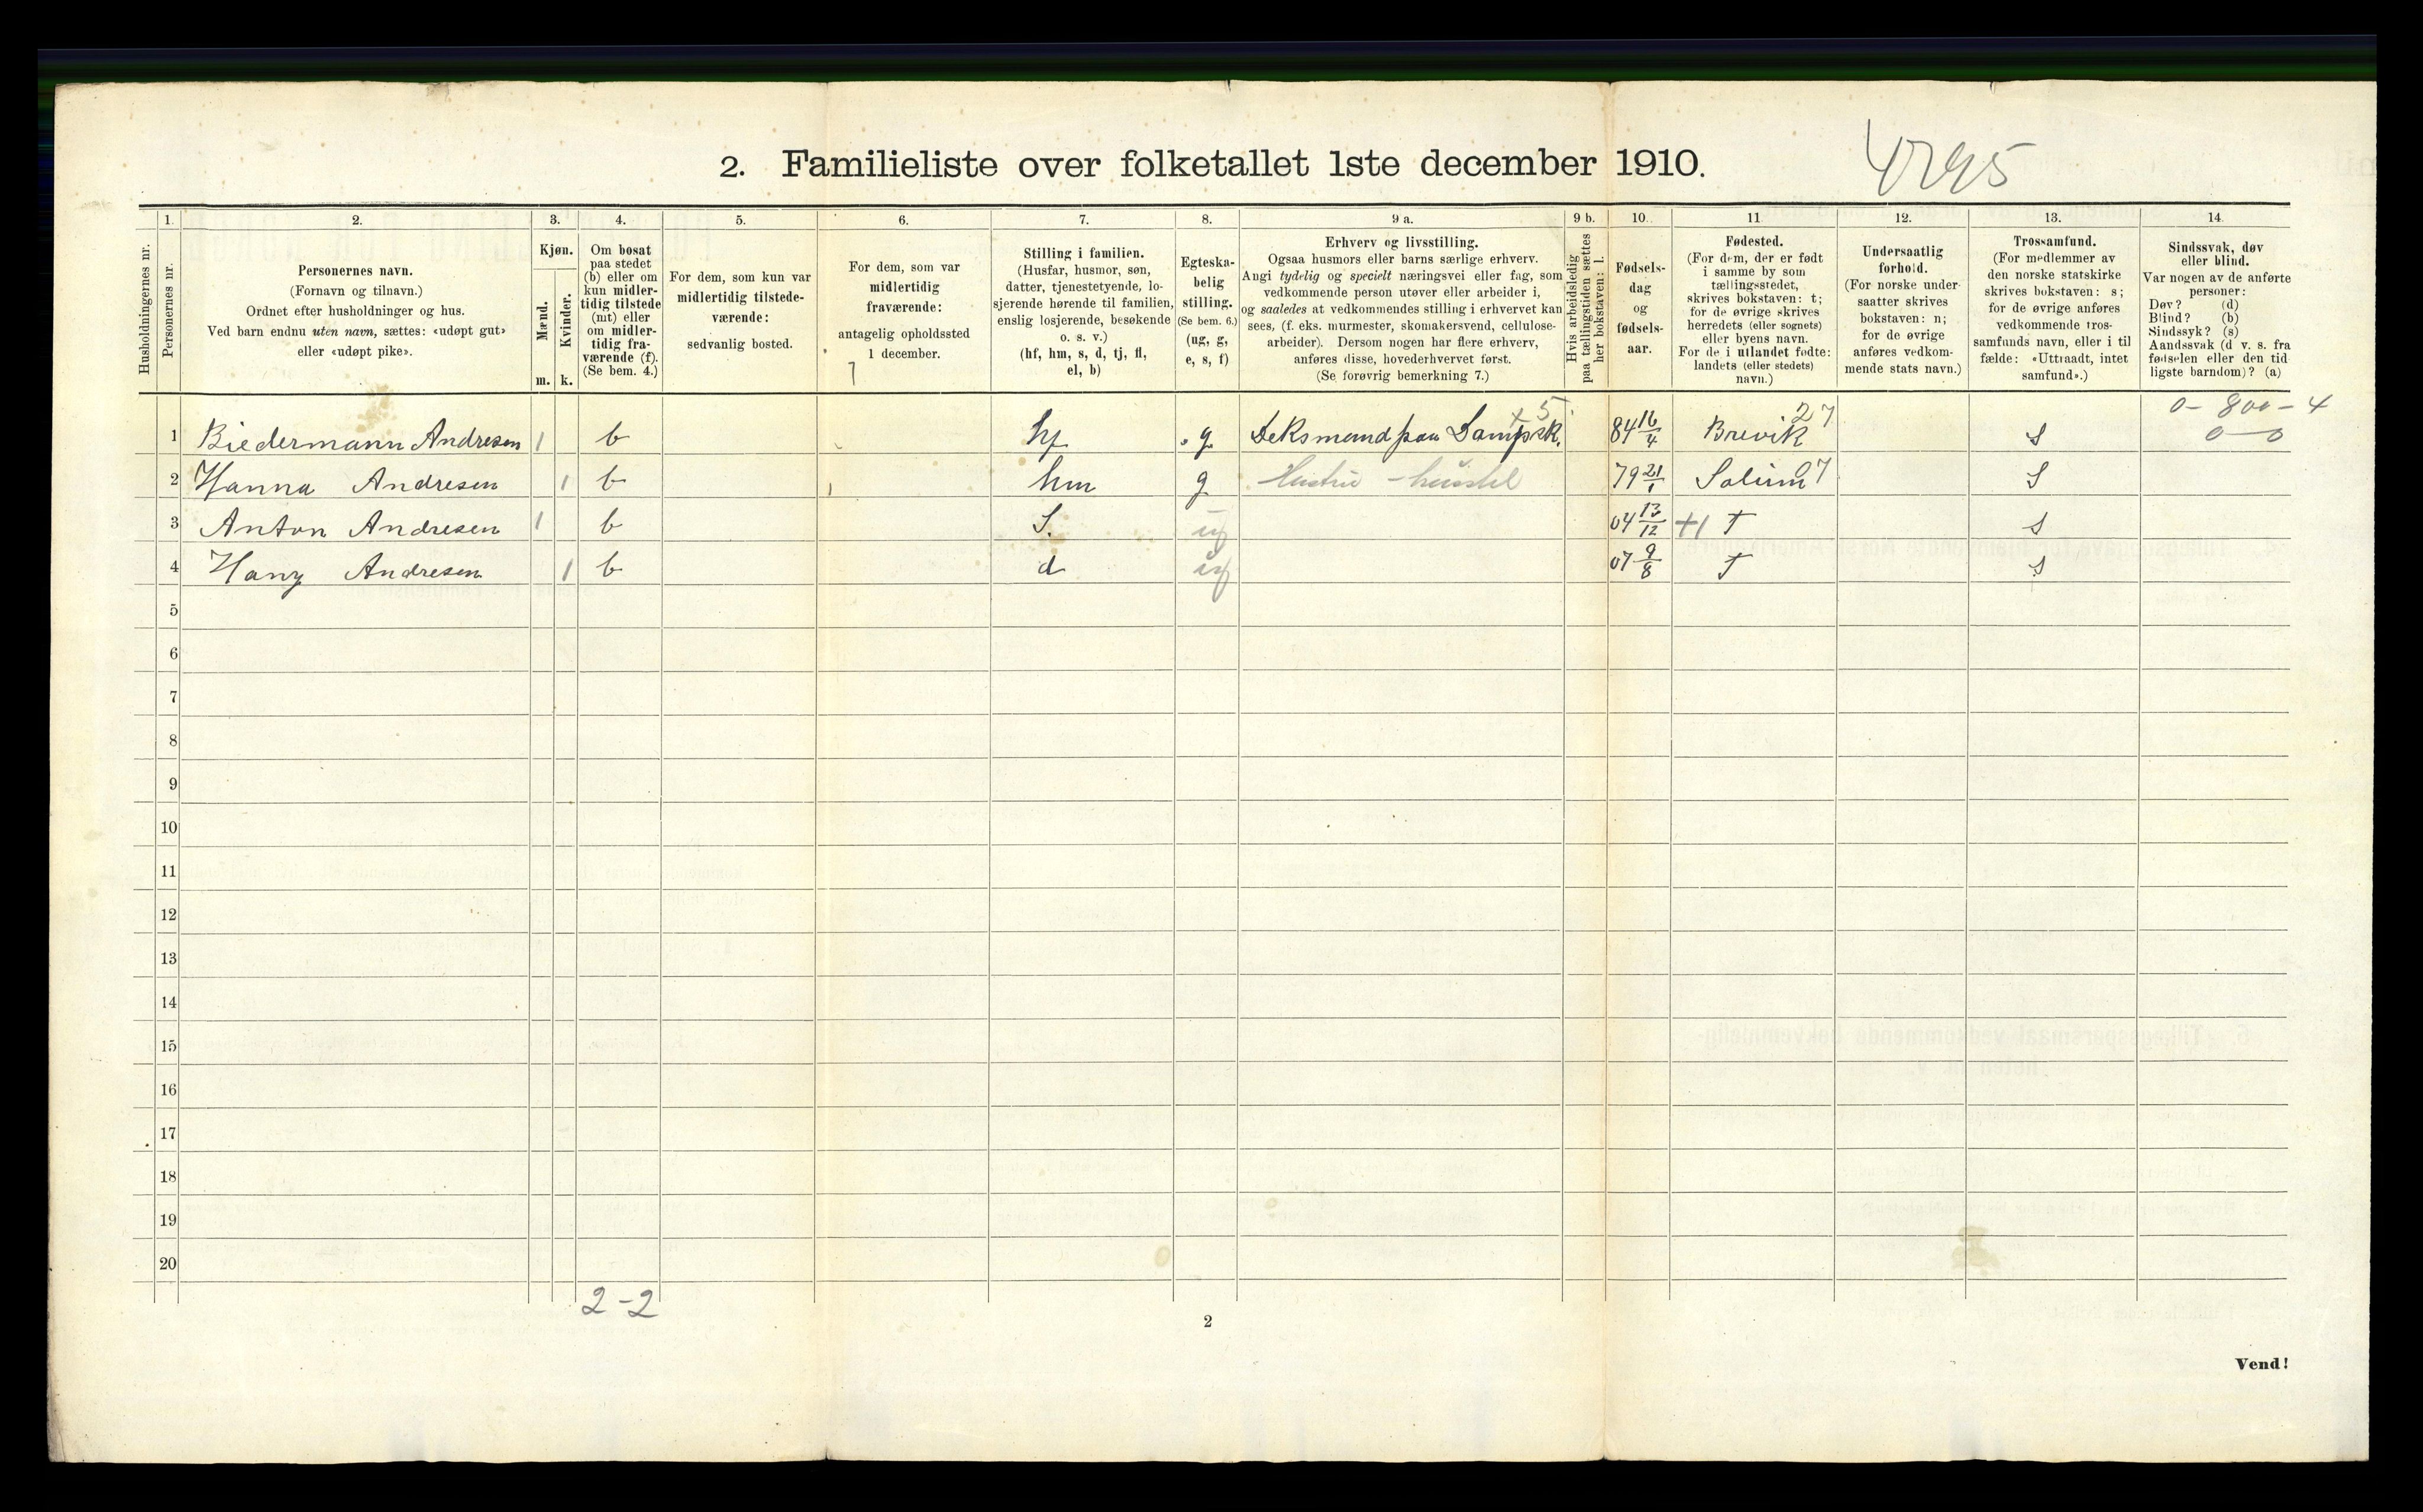 2. Familieliste over folketallet 1ste december 1910.
4295
1. 2. 3. 4. 5. 6. 7. 8. 9 a. 9 b. 10. 11 12. 13. 14.
Husholdningernes nr.
Personernes nr.
Personernes navn.
(Fornavn og tilnavn.)
Ordnet efter husholdninger og hus.
Ved barn endnu uten navn, sættes: «udøpt gut»
eller «udøpt pike».
Kjøn.
Mænd.
Kvinder.
m. k.
Om bosat
paa stedet
(b) eller om
kun midler-
tidig tilstede
(mt) eller
om midler-
tidig fra-
værende (f).
(Se bem. 4.)
For dem, som kun var
midlertidig tilstede-
værende:
sedvanlig bosted.
For dem, som var
midlertidig
fraværende:
antagelig opholdssted
1 december.
Stilling i familien.
(Husfar, husmor, søn,
datter, tjenestetyende, lo-
sjerende hørende til familien,
enslig losjerende, besøkende
o. s. v.)
(hf, hm, s, d, tj, fl,
el, b)
Egteska-
belig
stilling.
(Se bem. 6.)
(ug, g,
e, s, f)
Erhverv og livsstilling.
Ogsaa husmors eller barns særlige erhverv.
Angi tydelig og specielt næringsvei eller fag, som
vedkommende person utøver eller arbeider i,
og saaledes at vedkommendes stilling i erhvervet kan
sees, (f. eks. murmester, skomakersvend, cellulose-
arbeider). Dersom nogen har flere erhverv,
anføres disse, hovederhvervet først.
(Se forøvrig bemerkning 7.)
Hvis arbeidsledig
paa tællingstiden sættes
her bokstaven: l.
Fødsels-
dag
og
fødsels-
aar.
Fødested.
(For dem, der er født
i samme by som
tællingsstedet,
skrives bokstaven: t;
for de øvrige skrives
herredets (eller sognets)
eller byens navn.
For de i utlandet fødte:
landets (eller stedets)
navn.)
Undersaatlig
forhold.
(For norske under-
saatter skrives
bokstaven: n;
for de øvrige
anføres vedkom-
mende stats navn.)
Trossamfund.
(For medlemmer av
den norske statskirke
skrives bokstaven: s;
for de øvrige anføres
vedkommende tros-
samfunds navn, eller i til
fælde: «Uttraadt, intet
samfund».)
Sindssvak, døv
eller blind.
Var nogen av de anførte
personer:
Døv? (d)
Blind? (b)
Sindssyk? (s)
Aandssvak (d v. s. fra
fødselen eller den tid
ligste barndom)? (a)
+5 27 0-800-4
1 Biedermann Andresen 1 b hf g Deksmand paa Dampsk. 84 16/4 Brevik s 0-0
2 Hanna Andresen 1 b hm g Hustru - husstel 79 21/1 Solum 27 s
3 Anton Andresen 1 b s. ug 04 13/12 +1 T s
4 Hany Andresen 1 b d ug 07 9/8 T s
5
6
7
8
9
10
11
12
13
14
15
16
17
18
19
20
2-2
2
Vend!